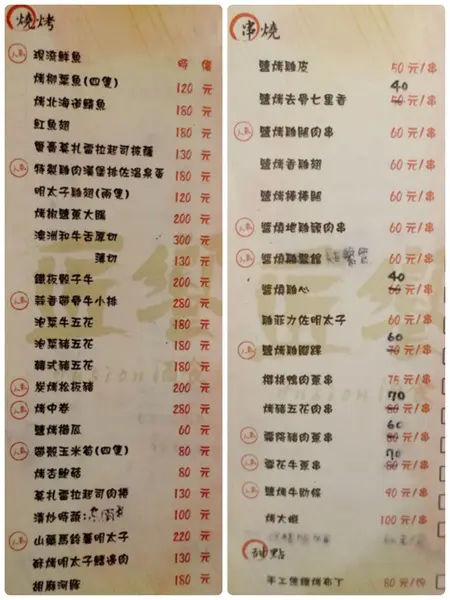 燒烤
人氣 現流鮮魚 時價
烤柳葉魚(四隻) 120 元
烤北海道鯖魚 180 元
魟魚翅 180 元
蟹膏莫札雷拉起司披薩 130 元
人氣 特製雞肉漢堡排佐溫泉蛋 180 元
明太子雞翅(兩隻) 120 元
烤椒鹽蔥大腸 200 元
澳洲和牛舌厚切 300 元
薄切 130 元
鐵板骰子牛 200 元
人氣 蒜香帶骨牛小排 280 元
泡菜牛五花 180 元
泡菜豬五花 180 元
韓式豬五花 180 元
人氣 炭烤松板豬 200 元
人氣 烤中卷 280 元
鹽烤櫛瓜 60 元
人氣 帶殼玉米筍(四隻) 80 元
烤杏鮑菇 80 元
莫札雷拉起司肉捲 130 元
清炒時蔬: 100 元
人氣 山藥馬鈴薯明太子 220 元
酥烤明太子鱈邊肉 130 元
胡麻河豚 180 元
串燒
鹽烤雞皮 50 元/串
鹽烤去骨七里香 50 40 元/串
人氣 鹽烤雞腿肉串 60 元/串
鹽烤香雞翅 60 元/串
鹽烤棒棒腿 60 元/串
人氣 醬燒地雞豬肉串 60 元/串
人氣 醬燒雞蔥館 60 元/串
醬燒雞心 60 40 元/串
雞菲力佐明太子 60 元/串
人氣 鹽烤雞腳踝 70 60 元/串
櫻桃鴨肉蔥串 75 元/串
烤豬五花肉串 80 70 元/串
人氣 雪花豬肉蔥串 80 60 元/串
人氣 雪花牛蔥串 80 70 元/串
人氣 鹽烤牛肋條 90 元/串
烤大蝦 100 元/串
甜點
手工焦糖烤布丁 80 元/份